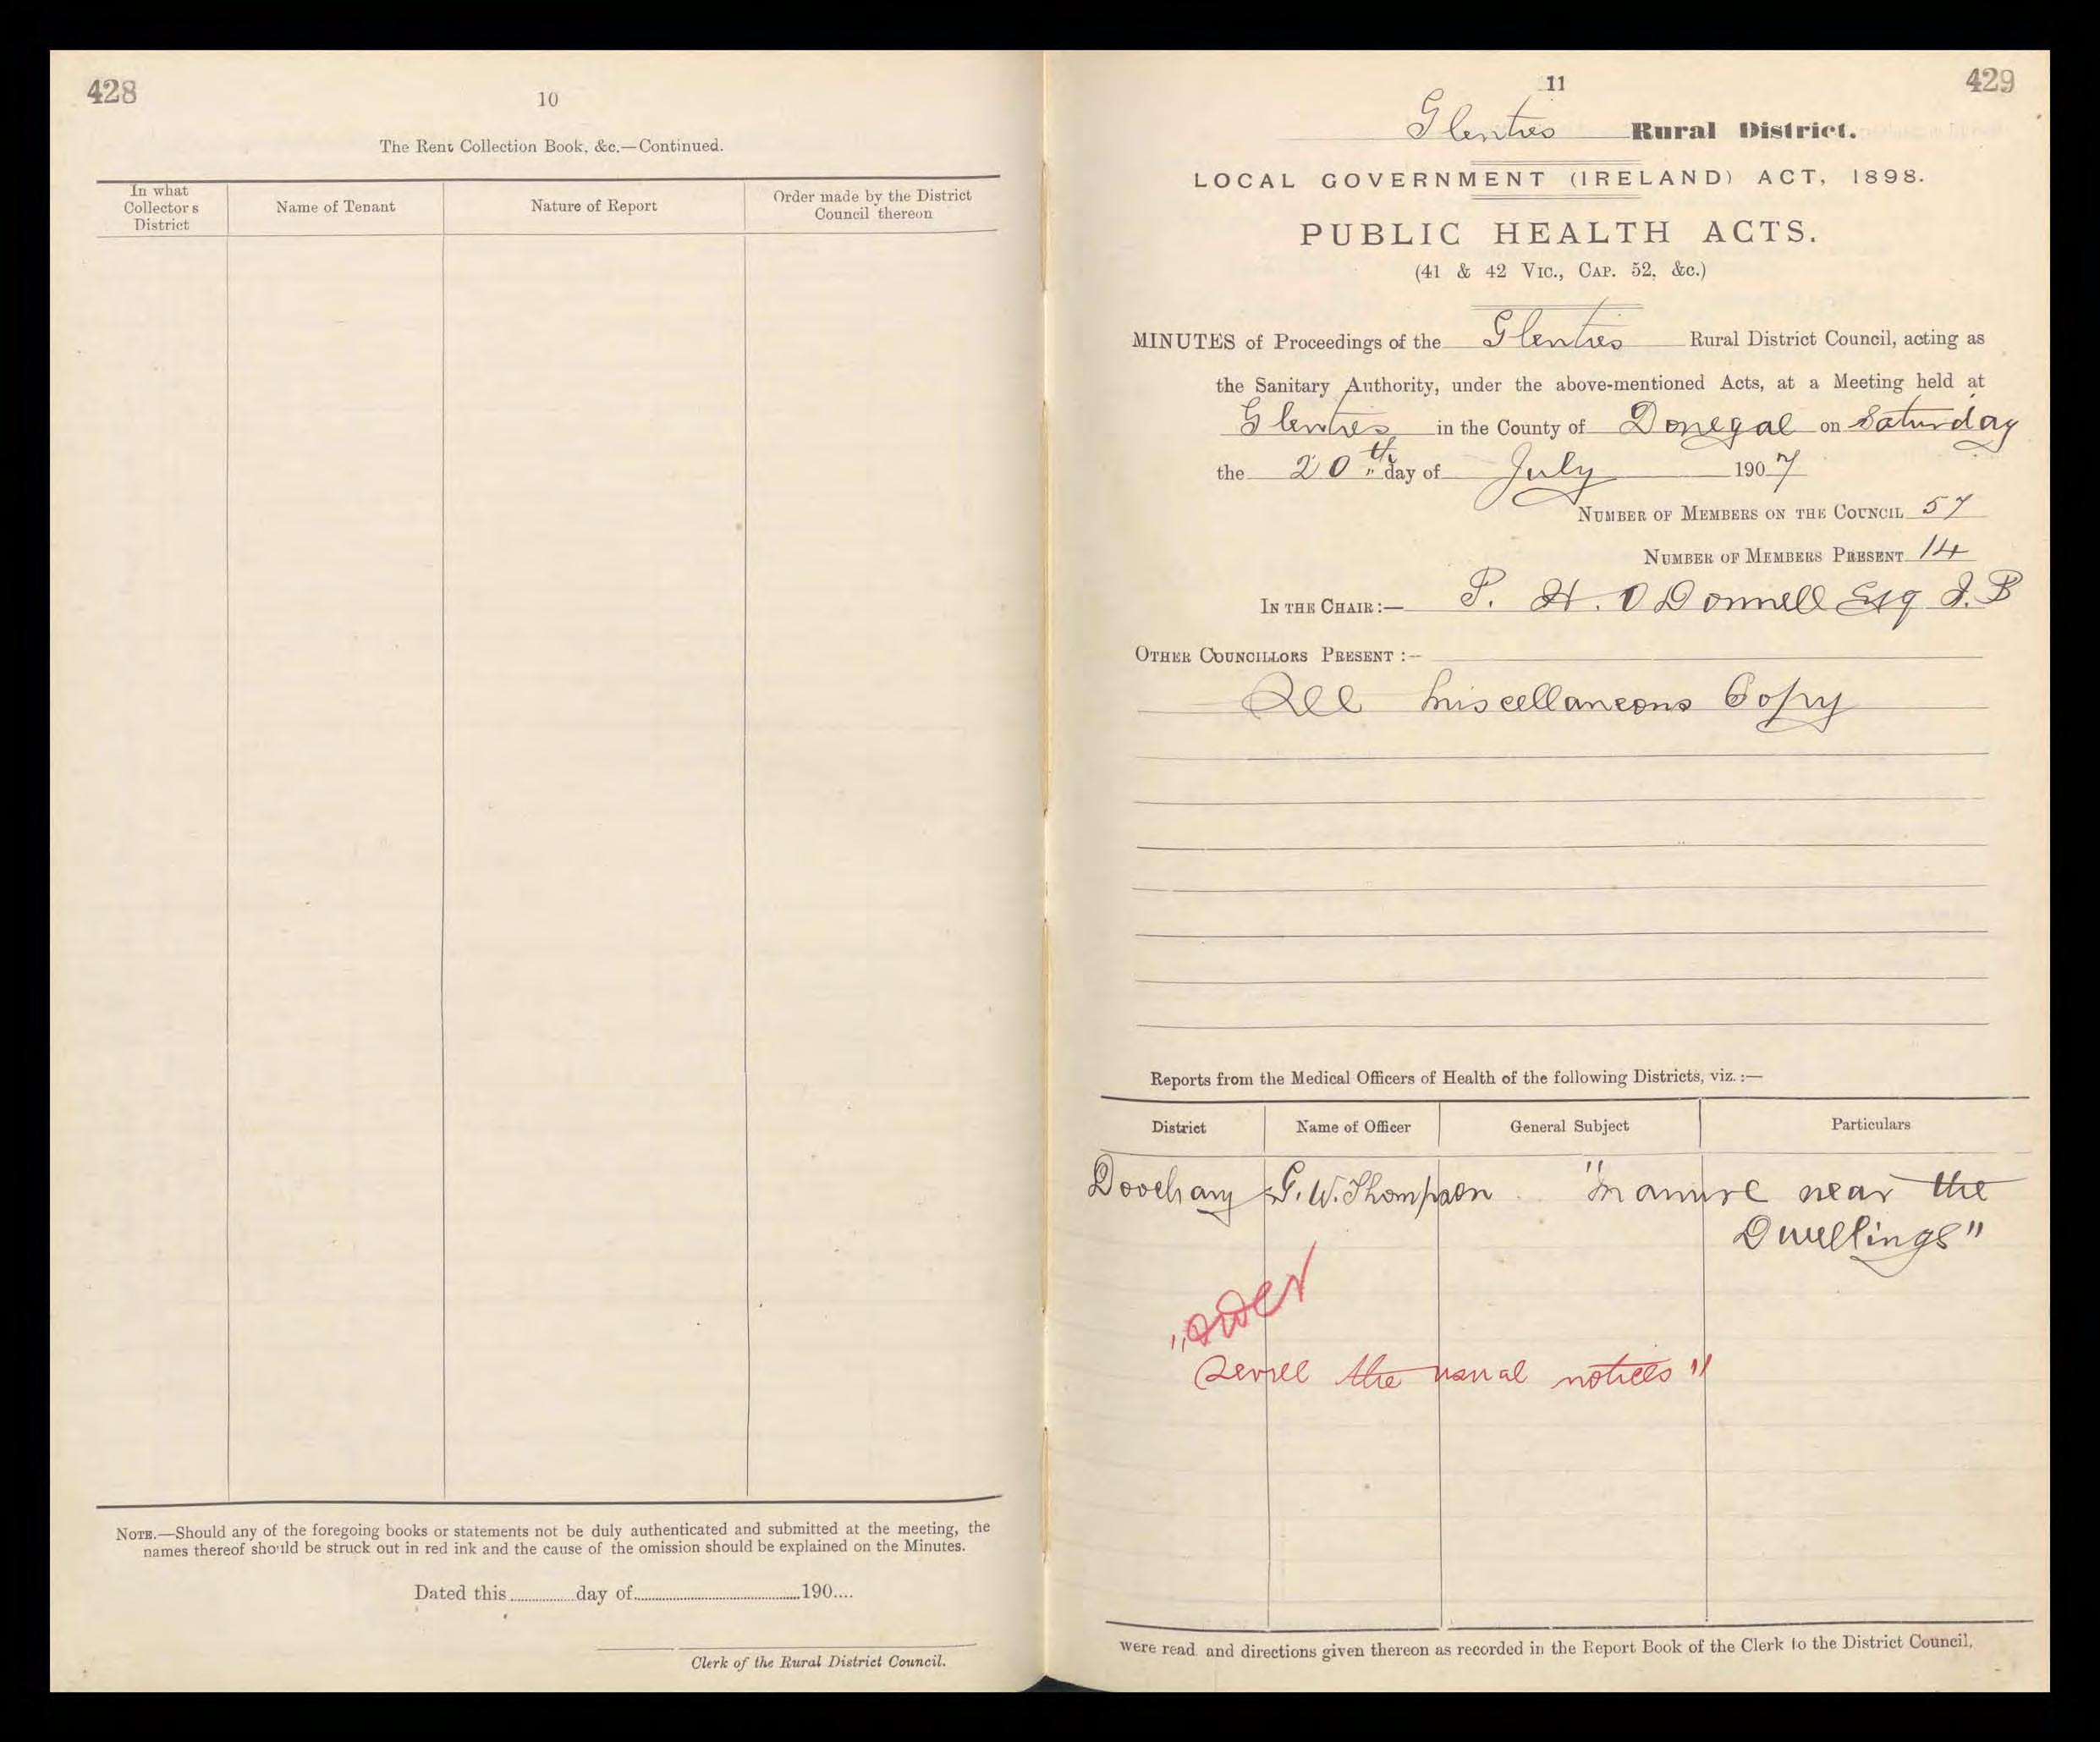 428
10
The Rent Collection Book, &c.—Continued.
In what Collectors District
Name of Tenant
Nature of Report
Order made by the District Council thereon
NOTE.—Should any of the foregoing books or statements not be duly authenticated and submitted at the meeting, the
names thereof should be struck out in red ink and the cause of the omission should be explained on the Minutes.
Dated this ............ day of ............ 190....
Clerk of the Rural District Council.
11
429
Glenties Rural District.
LOCAL GOVERNMENT (IRELAND) ACT, 1898.
PUBLIC HEALTH ACTS.
(41 & 42 VIC., CAP. 52, &c.)
MINUTES of Proceedings of the Glenties Rural District Council, acting as
the Sanitary Authority, under the above-mentioned Acts, at a Meeting held at
Glenties in the County of Donegal on Saturday
the 20th day of July 1907
NUMBER OF MEMBERS ON THE COUNCIL 57
NUMBER OF MEMBERS PRESENT 14
IN THE CHAIR:— P. H. O Donnell Esq J. P
OTHER COUNCILLORS PRESENT:—
See Miscellaneous Copy
Reports from the Medical Officers of Health of the following Districts, viz.:—
District
Name of Officer
General Subject
Particulars
Doochary G. W. Thompson "Manure near the
Dwellings"
"Order
Serve the usual notices"
were read and directions given thereon as recorded in the Report Book of the Clerk to the District Council,